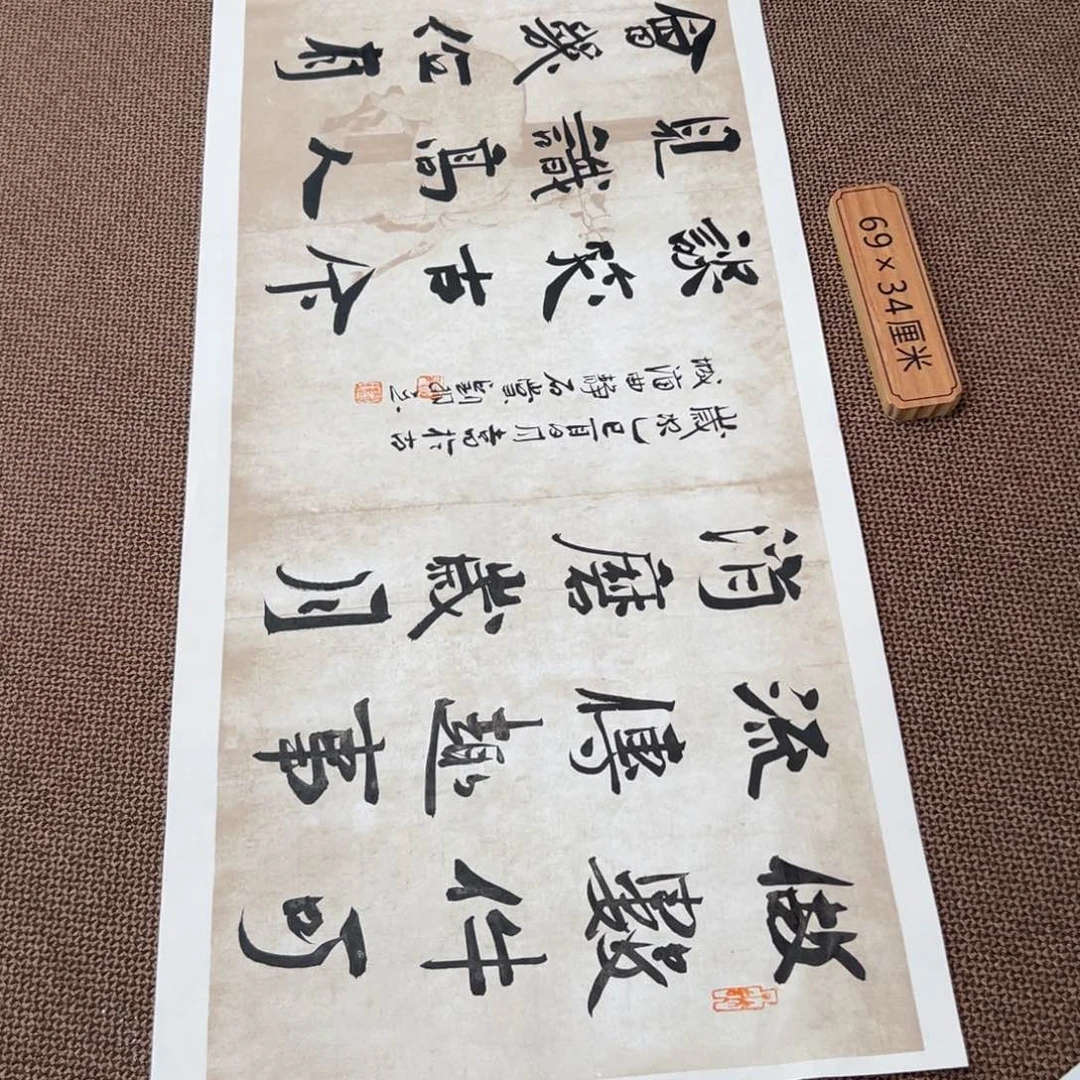 做數件可
流傳趣事
消磨歲月
會幾位有
見識高人
談笑古今
歲次乙巳月書於古
城曲靜石堂劉
69×34厘米